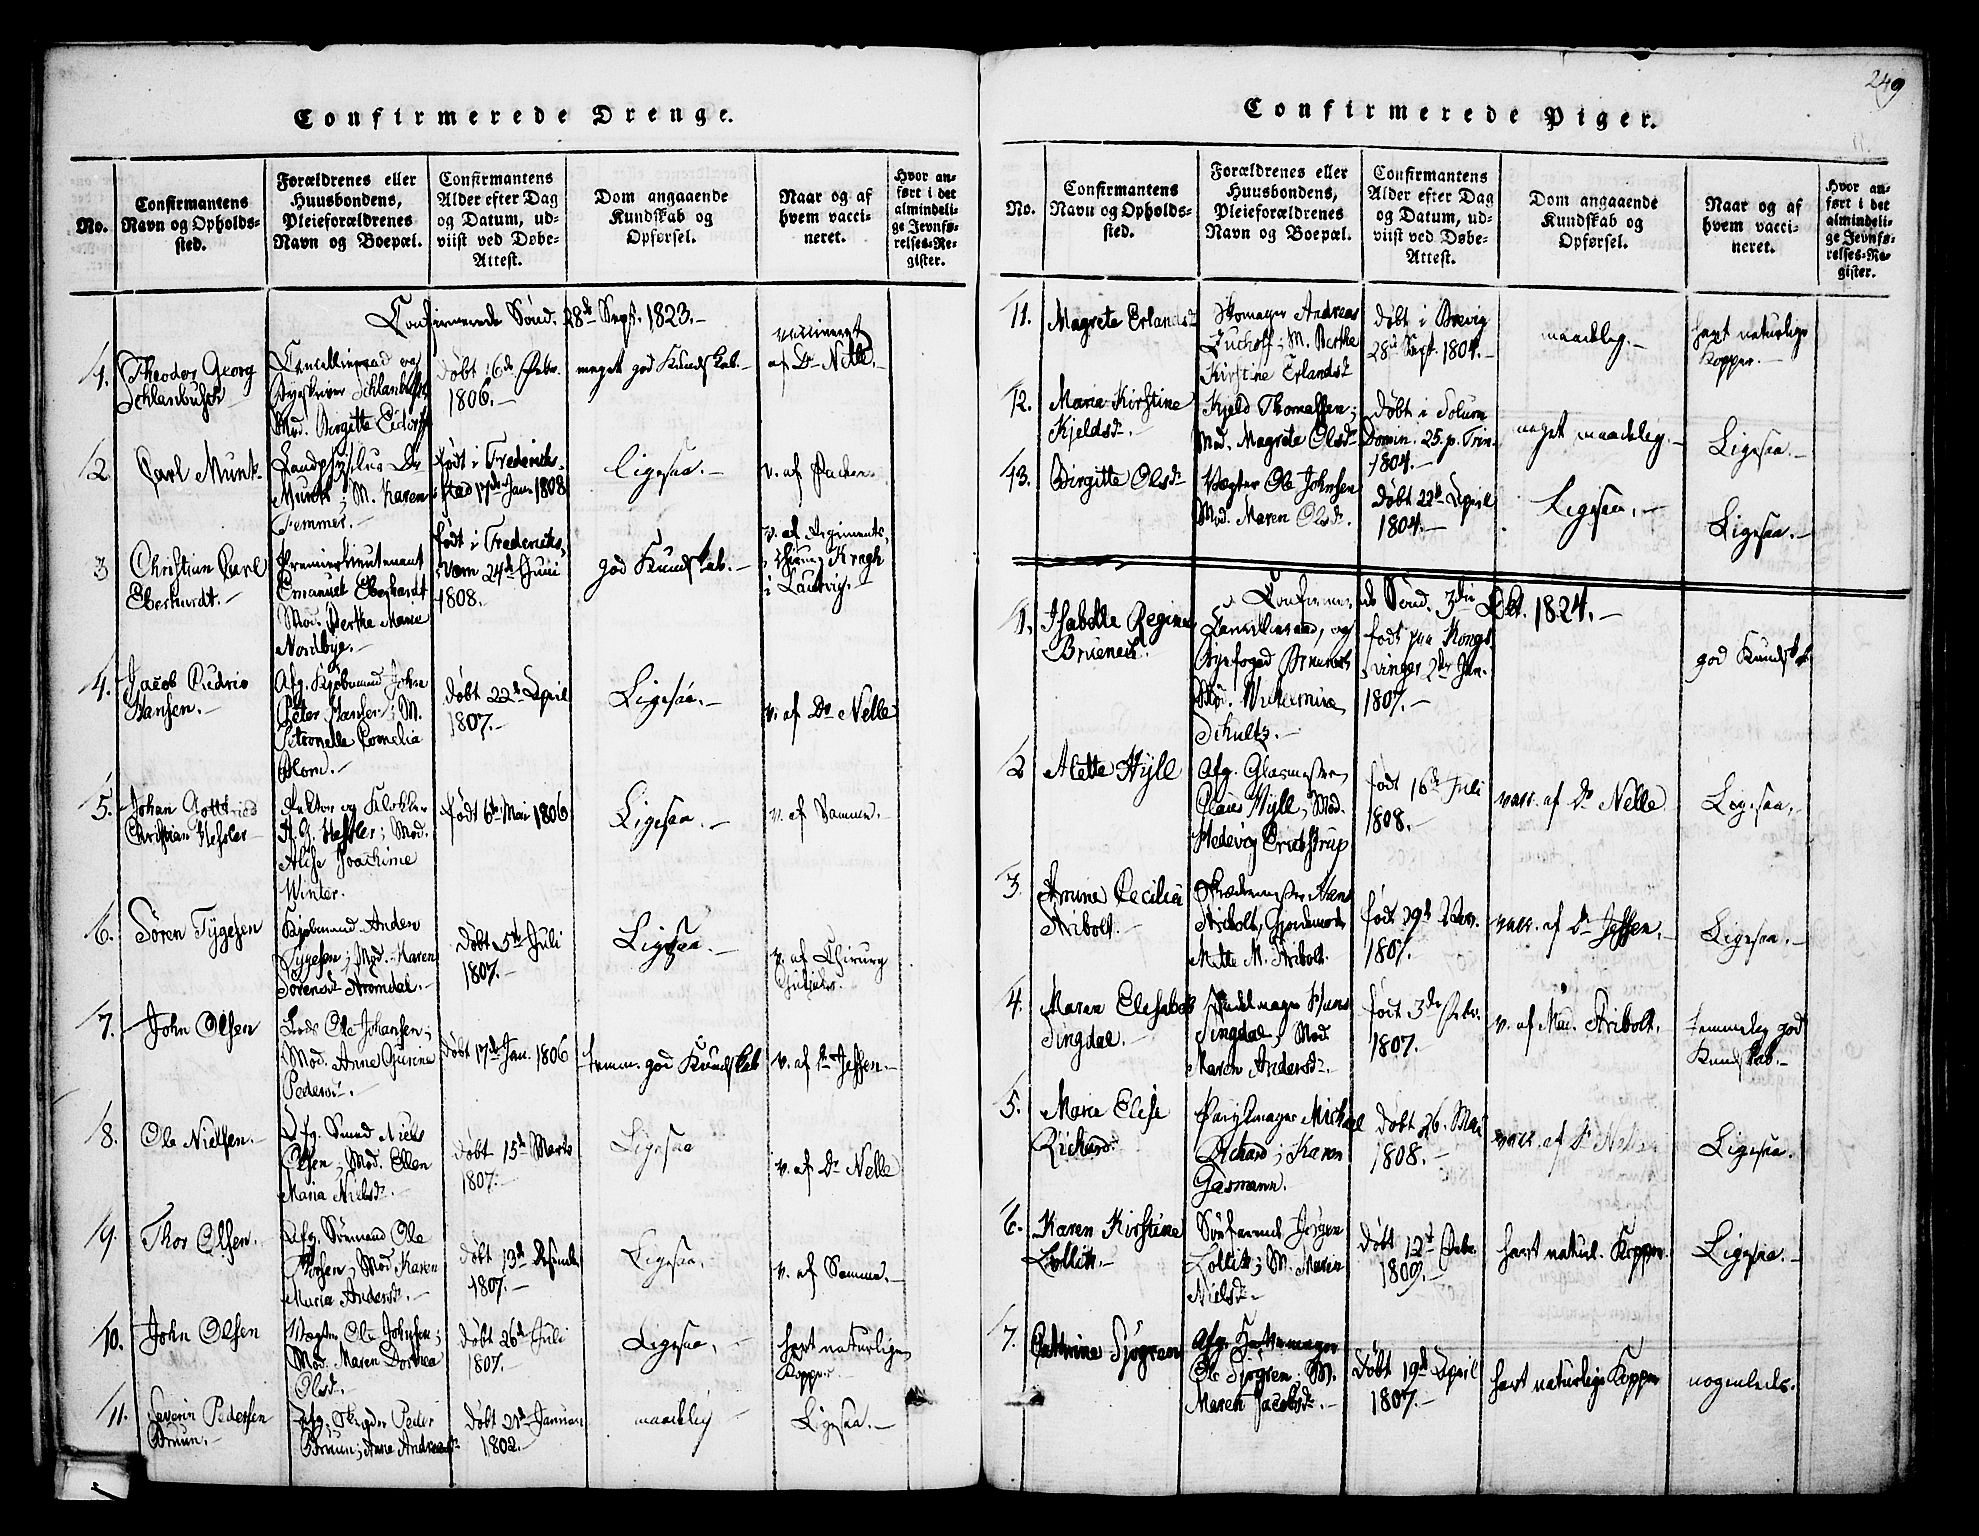 249
Confirmerede Drenge.
No.
Confirmantens
Navn og Opholds-
sted.
Forældrenes eller
Huusbondens,
Pleieforældrenes
Navn og Boepæl.
Confirmantens
Alder efter Dag
og Datum, ud-
viist ved Døbe-
Attest.
Dom angaaende
Kundskab og
Opførsel.
Naar og af
hvem vacci-
neret.
Hvor an-
ført i det
almindeli-
ge Jevnfø-
relses-Re-
gister.
Confirmerede Sønd. 28de Sept. 1823.-
1.
Theodor Georg
Schlanbusch
Cancelliraad og
Schlanbusch
Mod. Birgitte
døbt 6de Febr.
1806.-
meget god Kundskab.-
vaccineret
af Dr Nelle.-
2
Carl Munk.
Landphysicus Dr
Munk; M. Karen
Femmer.-
født i Frederik-
stad 17de Jan. 1808
Ligesaa.-
v. af
3
Christian Carl
Eberhardt.-
Premierlieutenant
Emanuel Eberhardt
Mod. Berthe Marie
Nordbye.-
født i Frederiks-
værn 24de Juni
1808.-
god Kundskab.-
v. af Regiments-
chirurg Kragh
i Laurvig.-
4.
Jacob Cudrio
Hansen.-
Afg. Kjøbmand John
Peter Hansen; M.
Petronelle Cornelia
Blom.-
døbt 22de April
1807.-
Ligesaa.-
v. af Dr Nelle
5.
Johan Gottfried
Christian Hessler
og Klokker
Hessler; Mod.
Alise Joachime
Winter.
født 6te Mai 1806
Ligesaa.-
v. af Samme.-
6.
Søren Tygesen
Kjøbmand Anders
Tygesen; Mod. Karen
Sørensdr Aromdal.-
døbt 5te Juli
1807.-
Ligesaa.-
v. af Chirurg
7.
John Olsen
Lods Ole Johansen;
Mod. Anne Gurine
Pedersdr.-
døbt 17de Jan. 1806
temm. god Kundskab
v. af Dr Jessen.-
8.
Ole Nielsen.-
Afg. Smed Niels
Olsen; Mod. Ellen
Maria Nielsdr.-
døbt 15de Marts
1807.-
Ligesaa
v. af Dr Nelle
9.
Thor Olsen.
Afg. Sømand Ole
Mod Karen
Maria Andersdr.-
døbt 19de
1807.-
Ligesaa.
v. af Samme.-
10.
John Olsen
Vægter Ole Johnsen;
Mod. Maren Dorthea
Olsdr.
døbt 26de Juli
1807.-
Ligesaa.
havt naturlige
Kopper.
11.
Severin Pedersen
Bruun.-
Afg. Peder
Bruun; Anne Andreasdr
døbt 21de Januar
1802.-
maadelig
Ligesaa.-
Confirmerede Piger.
No.
Confirmantens
Navn og Opholds-
sted.
Forældrenes eller
Huusbondens,
Pleieforældrenes
Navn og Boepæl.
Confirmantens
Alder efter Dag
og Datum, ud-
viist ved Døbe-
Attest.
Dom angaaende
Kundskab og
Opførsel.
Naar og af
hvem vacci-
neret.
Hvor an-
ført i det
almindeli-
ge Jevnfø-
relses-Re-
gister.
11.
Magrete Erlandsdr
Skomager Andreas
M. Berthe
Kirstine Erlandsdr
døbt i Brevig
28de Sept. 1804.-
maadelig.-
havt naturlige
Kopper.-
12.
Maria Kirstine
Kjeldsdr.-
Kjeld Thomassen;
Mod. Magrete Olsdr
døbt i Solum
Domin. 25. p. Trin.
1804.-
meget maadelig.-
Ligesaa.-
13.
Birgitte Olsdr
Vægter Ole Johnsen
Mod. Maren Olsdr.
døbt 22de April
1804.-
Ligesaa.-
Ligesaa.-
Confirmerede Sønd. 3die Oct. 1824.-
1.
Isabelle Regine
Bruenech.
Cancelliraad, og
Byefoged
Mod. Wilhelmine
Schultz.-
født paa Kongs-
vinger 2den Jan.
1807.-
god Kundskab
2
Alette Hyll
Afg. Glasmester
Claus Hyll; Mod.
Hedevig
født 16de Juli
1808.-
vacc. af Dr Nelle
Ligesaa.-
3.
Anne Cecilia
Aribolt.-
Hans
Aribolt; Gjordemoder
Mette M. Aribolt.
født 29de
1807.
vacc. af Dr Jessen.-
Ligesaa.-
4.
Maren Elisabeth
Tingdal.-
Hans
Tingdal; Mod.
Maren Andersdr.-
født 3de Febr.
1807.-
v. af Mad. Aribolt.-
temmelig god
Kundskab.-
5.
Marie Elise
Richard.
Michael
Richard; Karen
Gasmann.
døbt 26. Mai
1808.-
vacc. af Dr Nelle
Ligesaa.-
6.
Karen Kirstine
Lollik.-
Søefarende Jørgen
Lollik; M. Maria
Nielsdr.-
døbt 12te Febr.
1809.-
havt naturl. Kopper.
Ligesaa.-
7.
Cathrine Sjøgren
Afg. Hattemager
Ole Sjøgren; M.
Maren Jacobsdr.-
døbt 19de April
1807.-
havt naturlige Kopper
nogenleds.